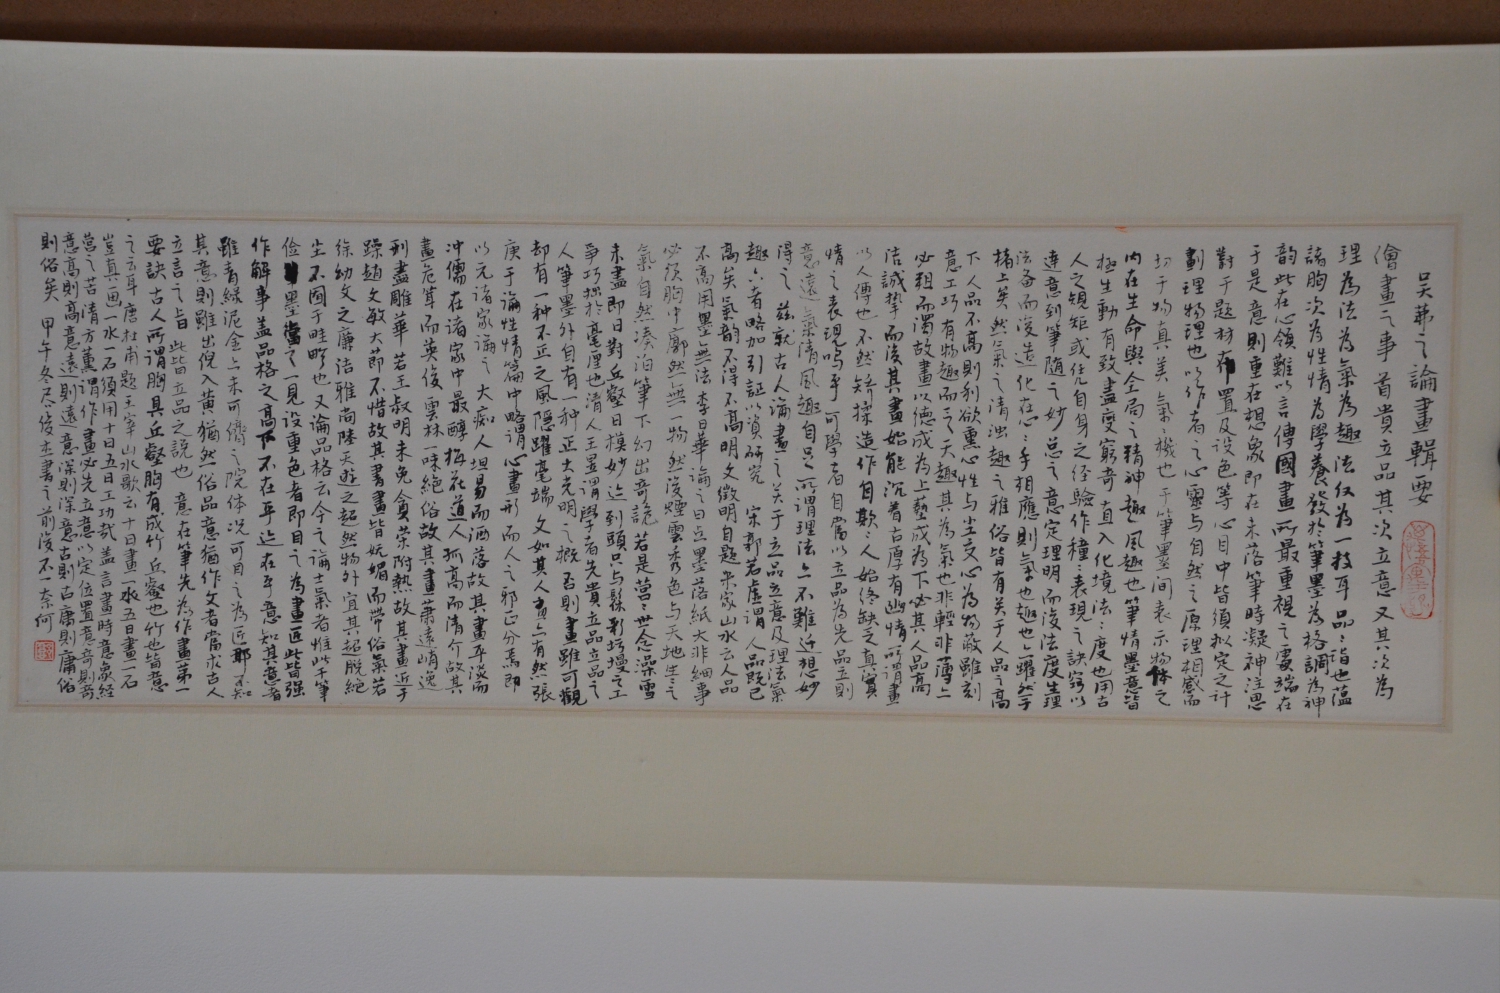 吴茀之論畫輯要
繪畫之事首貴立品其次立意又其次為
理為法為氣為趣法仅為一技耳品詣也蕴
諸胸次為性情為學養發於筆墨為格調為神
韵此在心領難以言傳國畫所最重視之處端在
于是意則重在想象即在未落筆時凝神注思
對于題材布置及設色等心目中皆須拟定之計
劃理物理也以作者之心靈与自然之原理相感而
切于物真美氣機也于筆墨间表示物体之
内在生命與全局之精神趣風趣也筆情墨意皆
極生動有致盡变窮奇直入化境法度也用古
人之規矩或任凢自身之经驗作種表現之訣窍以
達意到筆随之妙总之意定理明而後法度生理
法备而後造化在手相應則氣也趣也躍然于
楮上矣然氣之清浊趣之雅俗皆有关于人品之高
下人品不高則利欲熏心性与尘交心為物蔽雖刻
意工巧有物趣而乏天趣其為氣也非輕非薄
必粗而濁故畫以德成為上藝成為下必其人品高
洁誠挚而後其畫始能沉着古厚有幽情所謂畫
以人傳也不然矯揉造作自欺人始終缺乏真實
情之表現呜乎可學者自當以立品為先品立則
意遠氣清風趣自足所謂理法不難近想妙
得之兹就古人論畫之关于立品立意及理法氣
趣六者略加引証以資研究宋郭若虚謂人品既已
高矣氣韵不得不高明文徵明自題米家山水云人品
不高用墨無法李日華論之曰点墨落紙大非細事
必须胸中廓然無一物然後煙雲秀色与天地生之
氣自然凑泊筆下幻出奇詭若是营世念澡雪
未盡即日對丘壑日模妙迹到頭只与髹彩圬墁之工
爭巧拙於毫厘也清人王昱謂學者先貴立品立品之
人筆墨外自有一种正大光明之概否則畫雖可觀
却有一种不正之風隱躍毫端文如其人畫有然張
庚于論性情篇中略謂心畫形而人之邪正分焉即
以元諸家論之大痴人坦易而洒落故其畫平淡而
冲儒在諸家中最醇梅花道人孤高而清介故其
畫危耸而英俊雲林一味絕俗故其畫蕭遠峭逸
刊盡雕華若王叔明未免貪荣附热故其畫近于
躁趙文敏大節不惜故其書畫皆妩媚而带俗氣若
徐幼文之廉洁雅尚陸天遊之超然物外宜其超脱絕
尘不囿于畦畛也又論品格云今之論士氣者惟此干筆
俭墨當之一見设重色者即目之為畫匠此皆强
作解事盖品格之高下不在乎迹在乎意知其意者
雖青緑泥金未可儕之院体况可目之為匠耶不知
其意則雖出倪入黄猶然俗品意猶作文者當求古人
立言之旨此皆立品之説也意在筆先為作畫第一
要訣古人所謂胸具丘壑胸有成竹丘壑也竹也皆意
之云耳唐杜甫題王宰山水歌云十日畫一水五日畫一石
豈真画一水一石須用十日五日工功哉盖言畫時意象经
营之苦清方薰謂作畫必先立意以定位置意奇則奇
意高則高意遠則遠意深則深意古則古庸則庸俗
則俗矣甲午冬尽後圭書之前後不一奈何